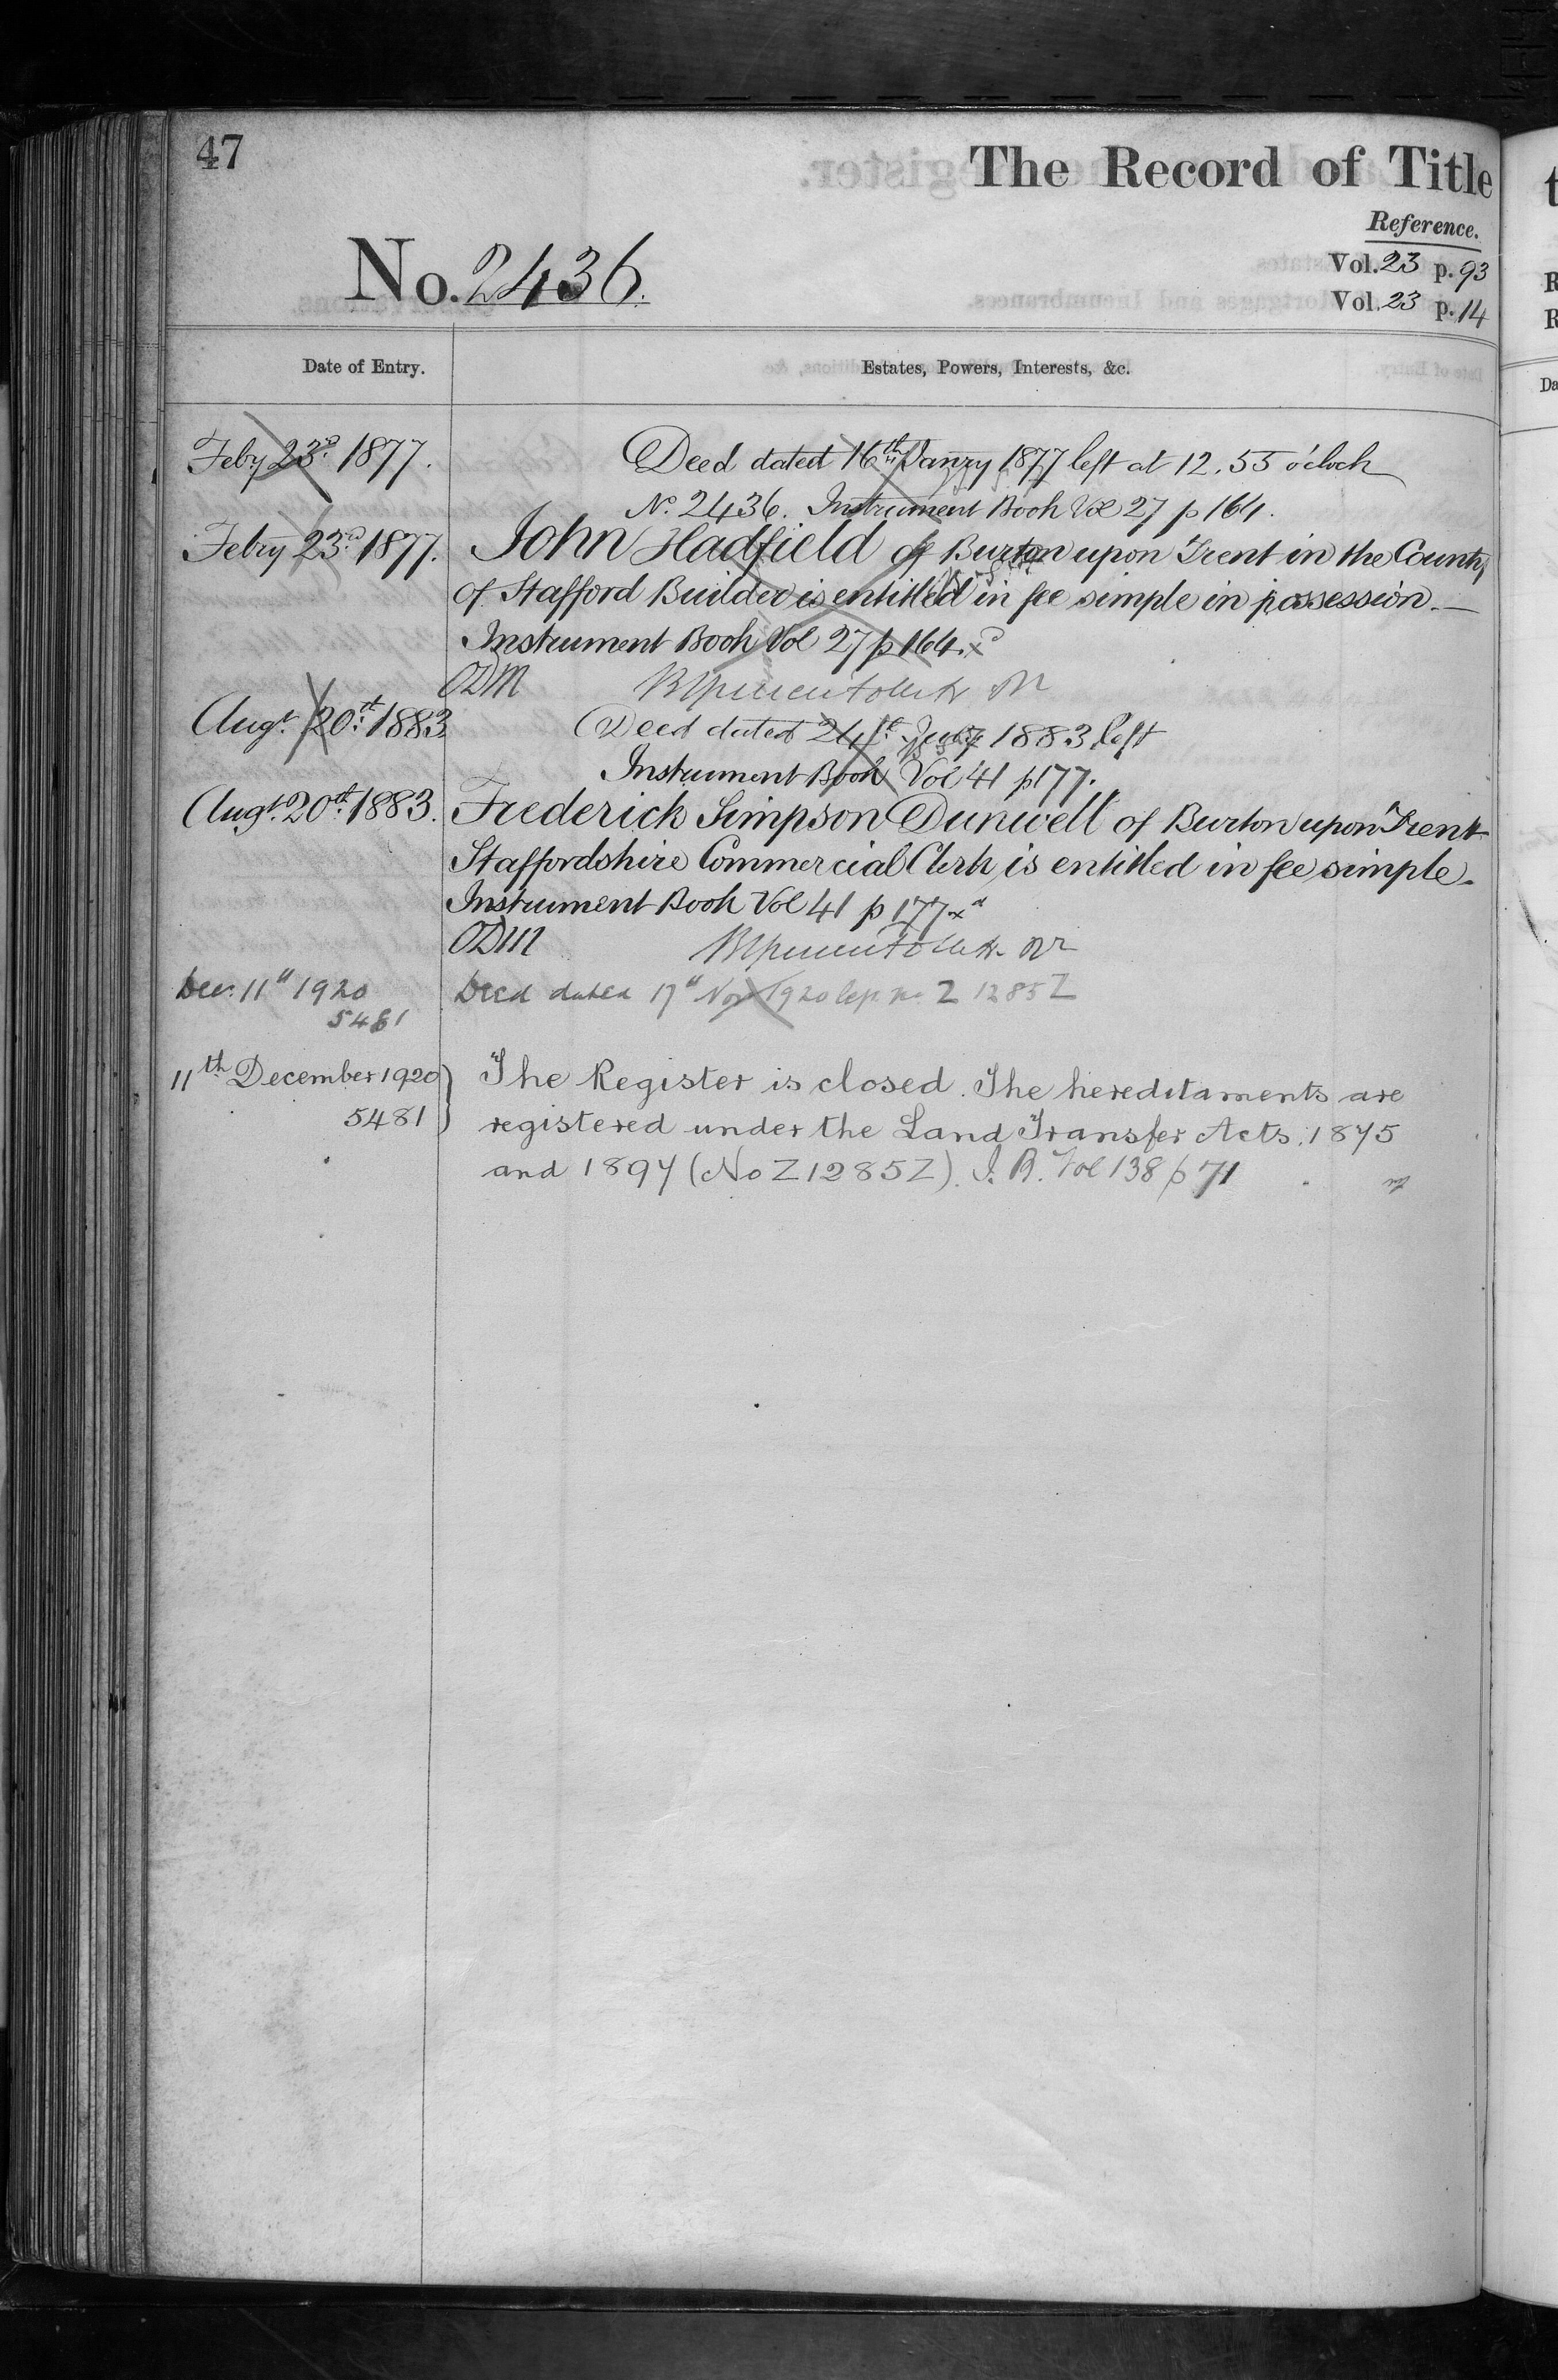 47
The Record of Title
Reference.
No. 2436.
Vol. 23 p. 93
Vol. 23 p. 14
Date of Entry. Estates, Powers, Interests, &c.
Feby 23d. 1877. Deed dated 16th Janry 1877 left at 12.55 o'clock
No. 2436. Instrument Book Vol 27 p 164.
Febry 23d. 1877. John Hadfield of Burton upon Trent in the County
of Stafford Builder is entitled in fee simple in possession.—
Instrument Book Vol 27 p 164.
ODM
Augt. 20th. 1883 Deed dated 24th July 1883 left
Instrument Book Vol 41 p 177.
Augt. 20th. 1883. Frederick Simpson Dunwell of Burton upon Trent
Staffordshire Commercial Clerk is entitled in fee simple.
Instrument Book Vol 41 p 177
ODM
Dec. 11th 1920 Deed dated 17th Nov 1920 No Z 1285Z
5481
11th December 1920 } The Register is closed. The hereditaments are
5481 registered under the Land Transfer Acts, 1875
and 1897 (No Z1285Z). I. B. Vol 138 p 71